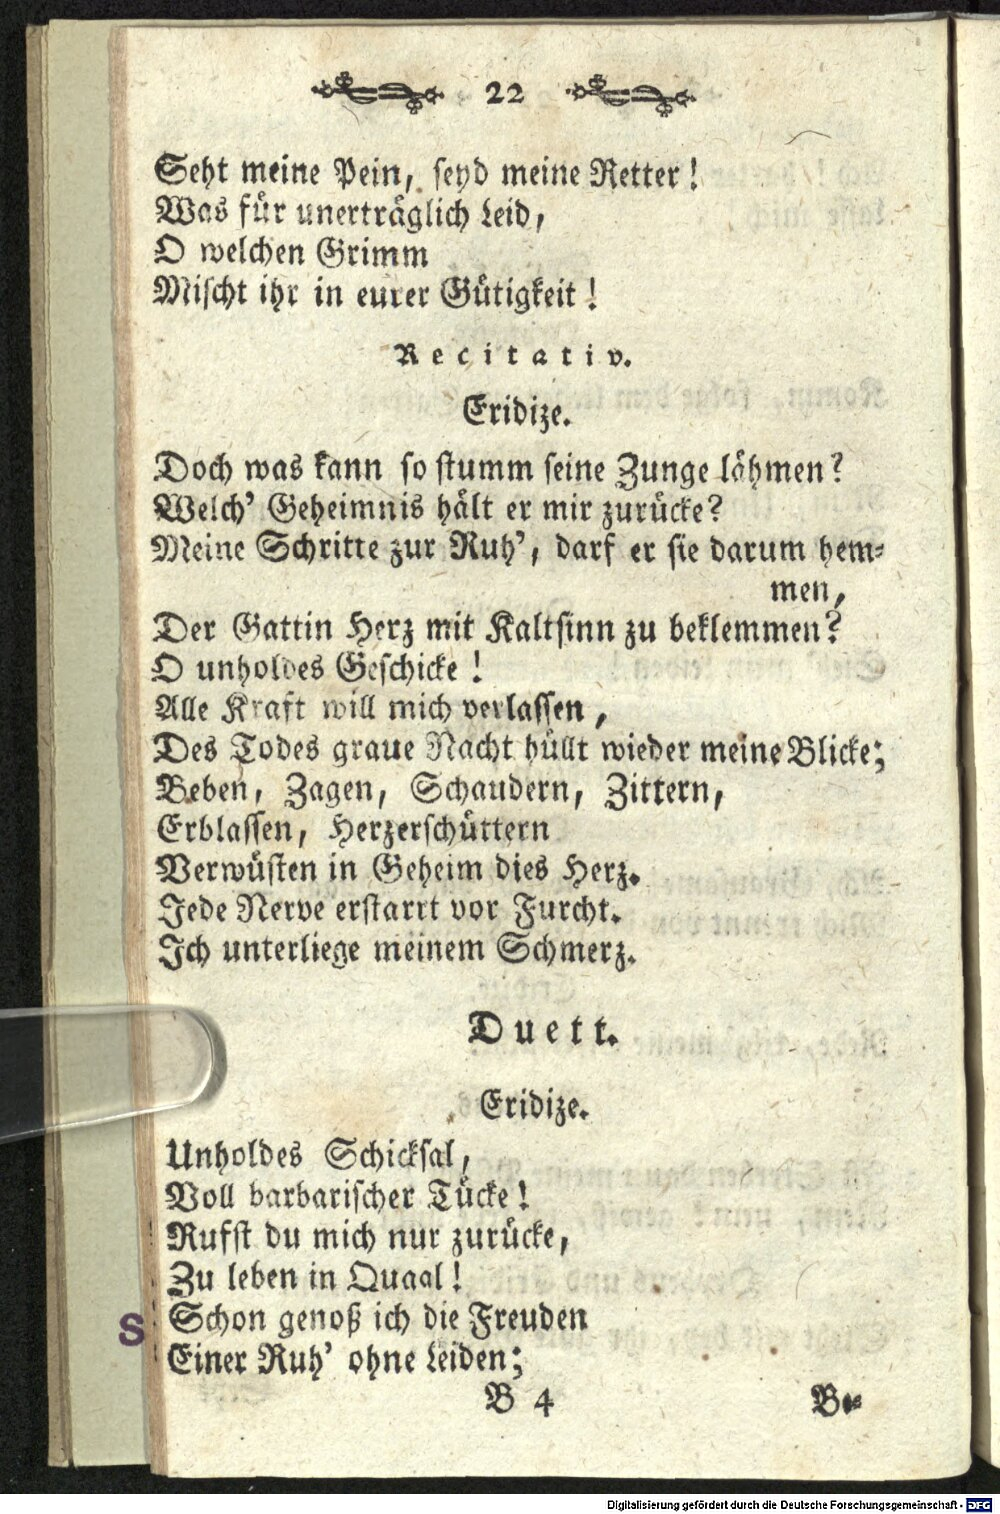 22
Seht meine Pein, seyd meine Retter!
Was für unerträglich Leid,
O welchen Grimm
Mischt ihr in eurer Gütigkeit!
Recitativ.
Eridize.
Doch was kann so stumm seine Zunge lähmen?
Welch' Geheimnis hält er mir zurücke?
Meine Schritte zur Ruh', darf er sie darum hem-
men,
Der Gattin Herz mit Kaltsinn zu beklemmen?
O unholdes Geschicke!
Alle Kraft will mich verlassen,
Des Todes graue Nacht hüllt wieder meine Blicke;
Beben, Zagen, Schaudern, Zittern,
Erblassen, Herzerschüttern
Verwüsten in Geheim dies Herz.
Jede Nerve erstarrt vor Furcht.
Ich unterliege meinem Schmerz.
Duett.
Eridize.
Unholdes Schicksal,
Voll barbarischer Tücke!
Rufst du mich nur zurücke,
Zu leben in Quaal!
Schon genoß ich die Freuden
S
Einer Ruh' ohne Leiden;
B 4 Be-
Digitalisierung gefördert durch die Deutsche Forschungsgemeinschaft - DFG